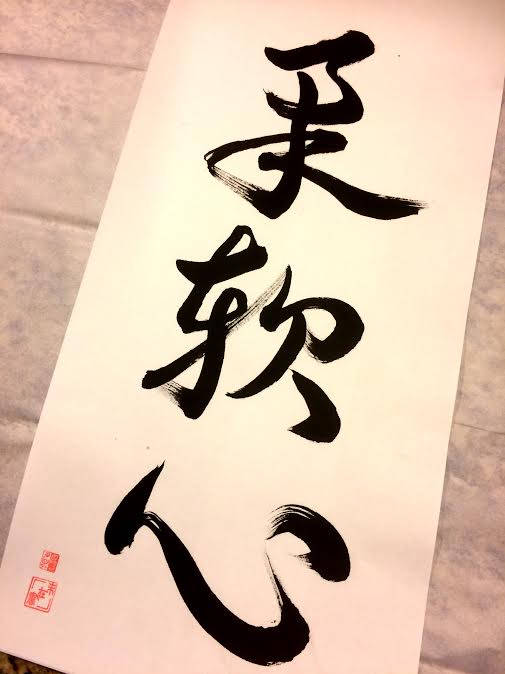 柔軟心